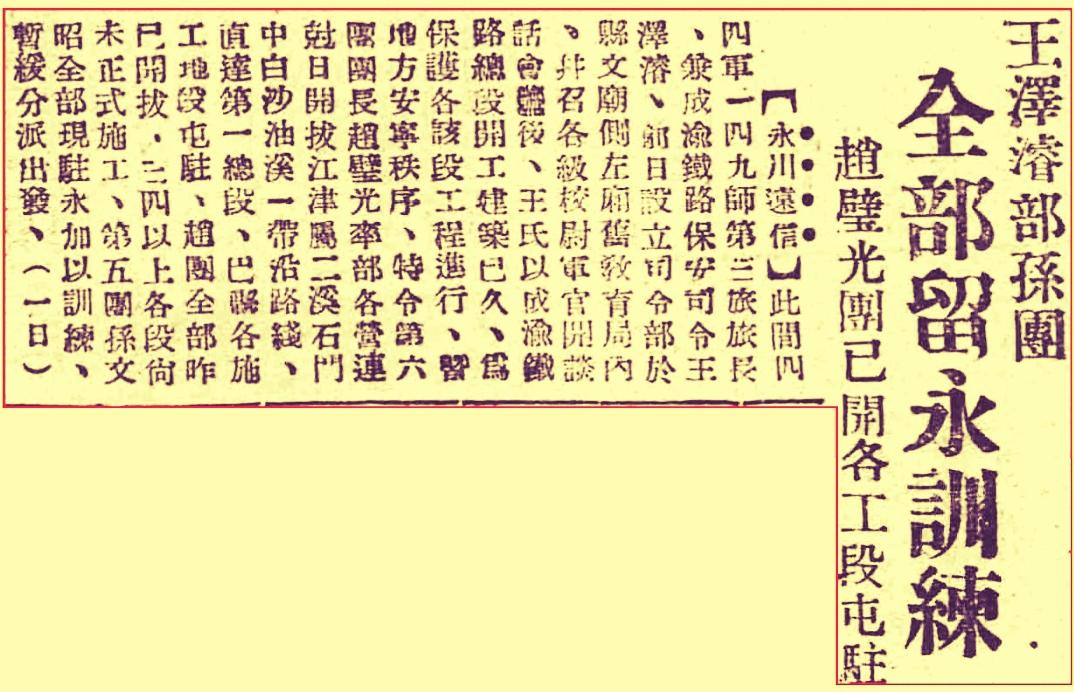 王澤濬部孫團
全部留永訓練
趙璧光團已開各工段屯駐
【永川遠信】此間四
四軍一四九師第三旅旅長
、兼成渝鐵路保安司令王
澤濬、前日設立司令部於
縣文廟側左廂舊敎育局內
、幷召各級校尉軍官開談
話會後、王氏以成渝鐵
路總段開工建築已久、爲
保護各該段工程進行、曁
地方安寧秩序、特令第六
團團長趙璧光率部各營連
尅日開拔江津屬二溪石門
中白沙油溪一帶沿路綫、
直達第一總段、巴縣各施
工地段屯駐、趙團全部昨
已開拔、三四以上各段尙
未正式施工、第五團孫文
昭全部現駐永加以訓練、
暫緩分派出發、（一日）